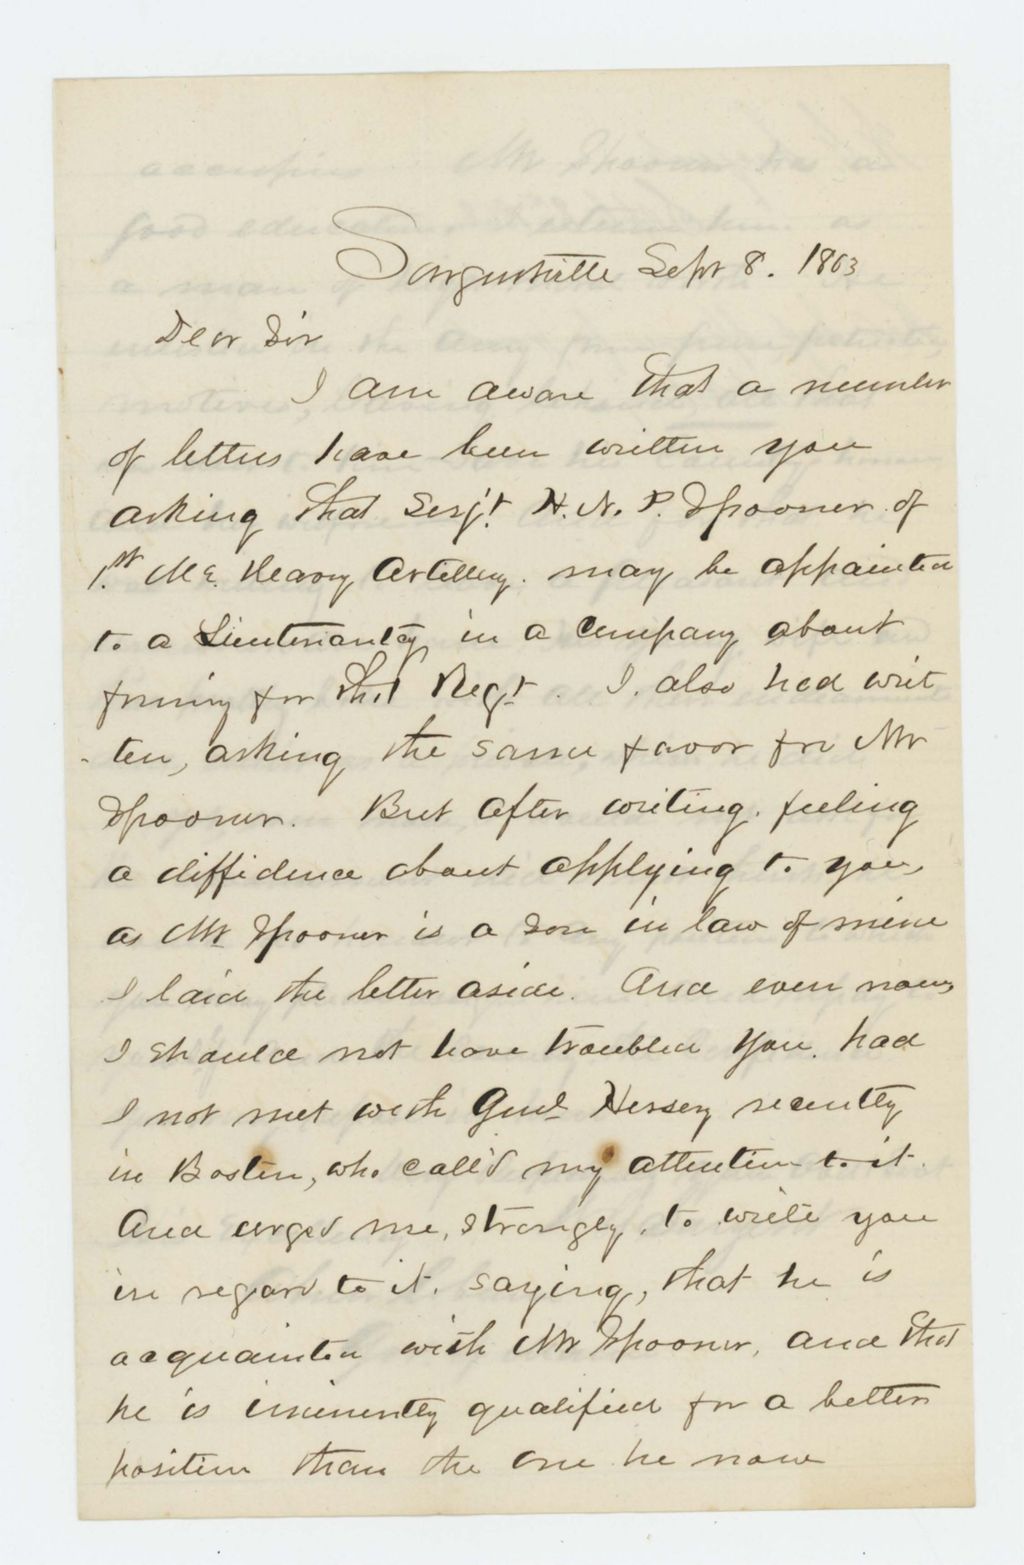 Sargentville Sept 8. 1863
Dear Sir
I am aware that a number
of letters have been written you
asking that Serj't H. N. P. Spooner of
1st Me. Heavy Artillery. may be appointed
to a Lieutenantcy in a Company about
forming for that Regt. I. also had writ
ten, asking the same favor for Mr
Spooner. But after writing. feeling
a diffidence about applying to you,
as Mr Spooner is a Son in law of mine
I laid the letter aside. And even now,
I should not have troubled You. had
I not met with Genl Hersey recently
in Boston, who call'd my attention to it.
And urged me, strongly, to write you
in regard to it. saying, that he is
acquainted with Mr Spooner, and that
he is iminently qualified for a better
position than the one he now